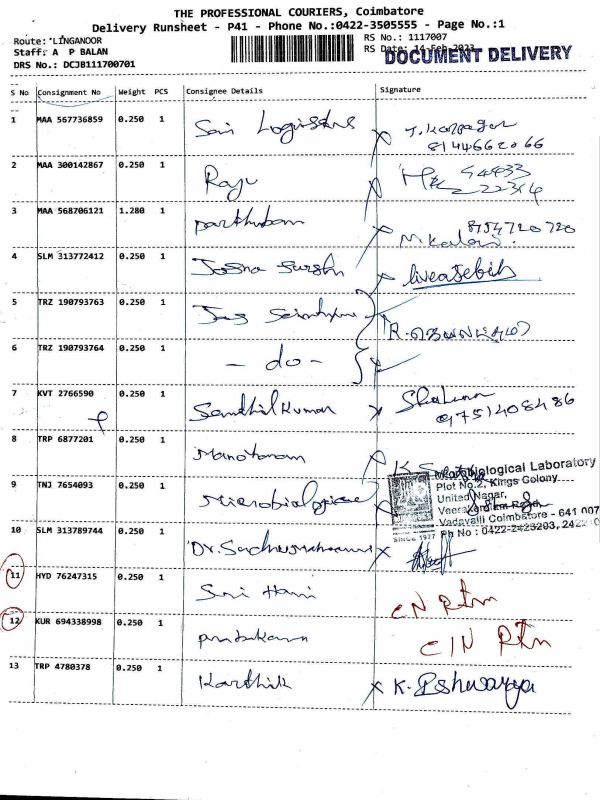 THE PROFESSIONAL COURIERS, Coimbatore
Delivery Runsheet - P41 - Phone No.:0422-3505555 - Page No.:1
Route: LINGANOOR
RS No.: 1117007
Staff: A P BALAN
RS Date: 14-Feb-2023
DOCUMENT DELIVERY
DRS No.: DCJB111700701
S No Consignment No Weight PCS Consignee Details Signature
1 MAA 567736859 0.250 1 Sai Logistics
8144662066
2 MAA 300142867 0.250 1 Raju
3 MAA 568706121 1.280 1 parthiban
M Kalai
4 SLM 313772412 0.250 1
5 TRZ 190793763 0.250 1
6 TRZ 190793764 0.250 1 - do -
7 KVT 2766590 0.250 1 Senthil Kumar
9751408486
8 TRP 6877201 0.250 1 Manoharan
9 TNJ 7654093 0.250 1 Microbiological
Microbiological Laboratory
Plot No.2, Kings Colony
United Nagar,
Vadavalli Coimbatore - 641 007
Ph No : 0422-2423203,
SINCE 1927
10 SLM 313789744 0.250 1
11 HYD 76247315 0.250 1 Sri Hari CN Rtn
12 KUR 694338998 0.250 1 prabakaran C/N Rtn
13 TRP 4780378 0.250 1 Karthik K. Eshwarya